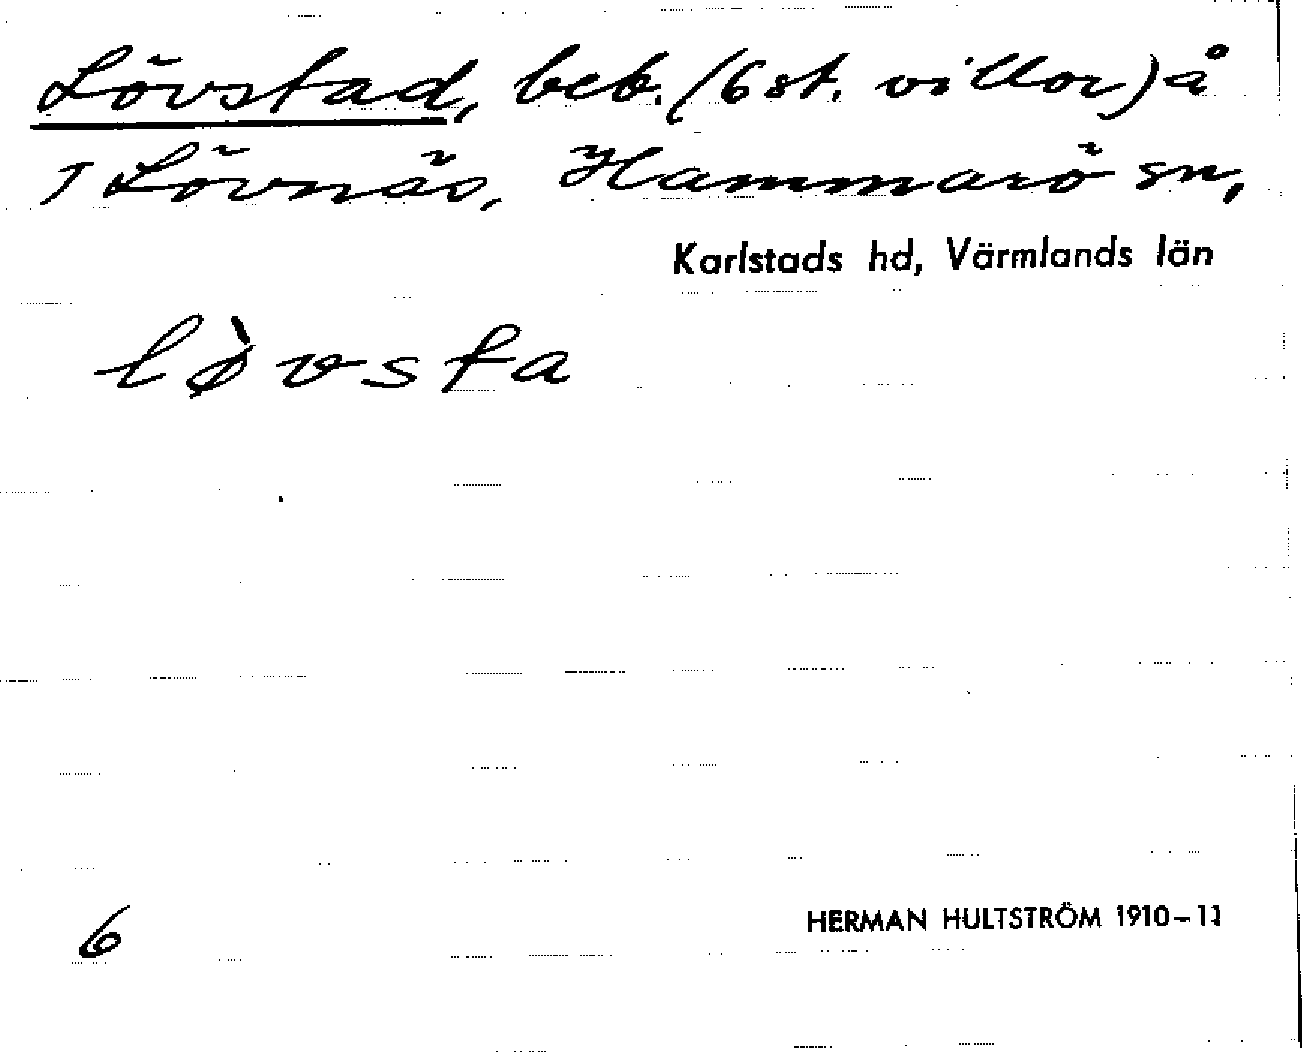 Lövstad, beb. (6 st. villor) å
1 Lövnäs, Hammarö sn,
Karlstads hd, Värmlands län
lø̀vsta
6
HERMAN HULTSTRÖM 1910–11